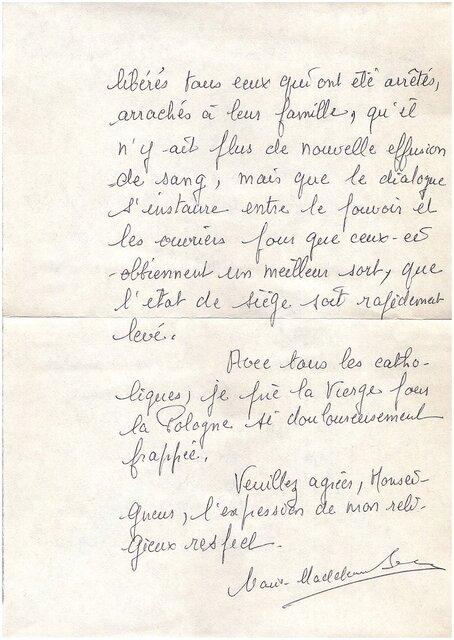 libérés tous ceux qui ont été arrêtés,
arrachés à leur famille, qu'il
n'y ait plus de nouvelle effusion
de sang, mais que le dialogue
s'instaure entre le pouvoir et
les ouvriers pour que ceux-ci
obtiennent un meilleur sort, que
l'état de siège soit rapidement
levé.
Avec tous les catho-
liques, je prie la Vierge pour
la Pologne si douloureusement
frappée.
Veuillez agréer, Monsei-
gneur, l'expression de mon reli-
gieux respect.
Marie-Madeleine